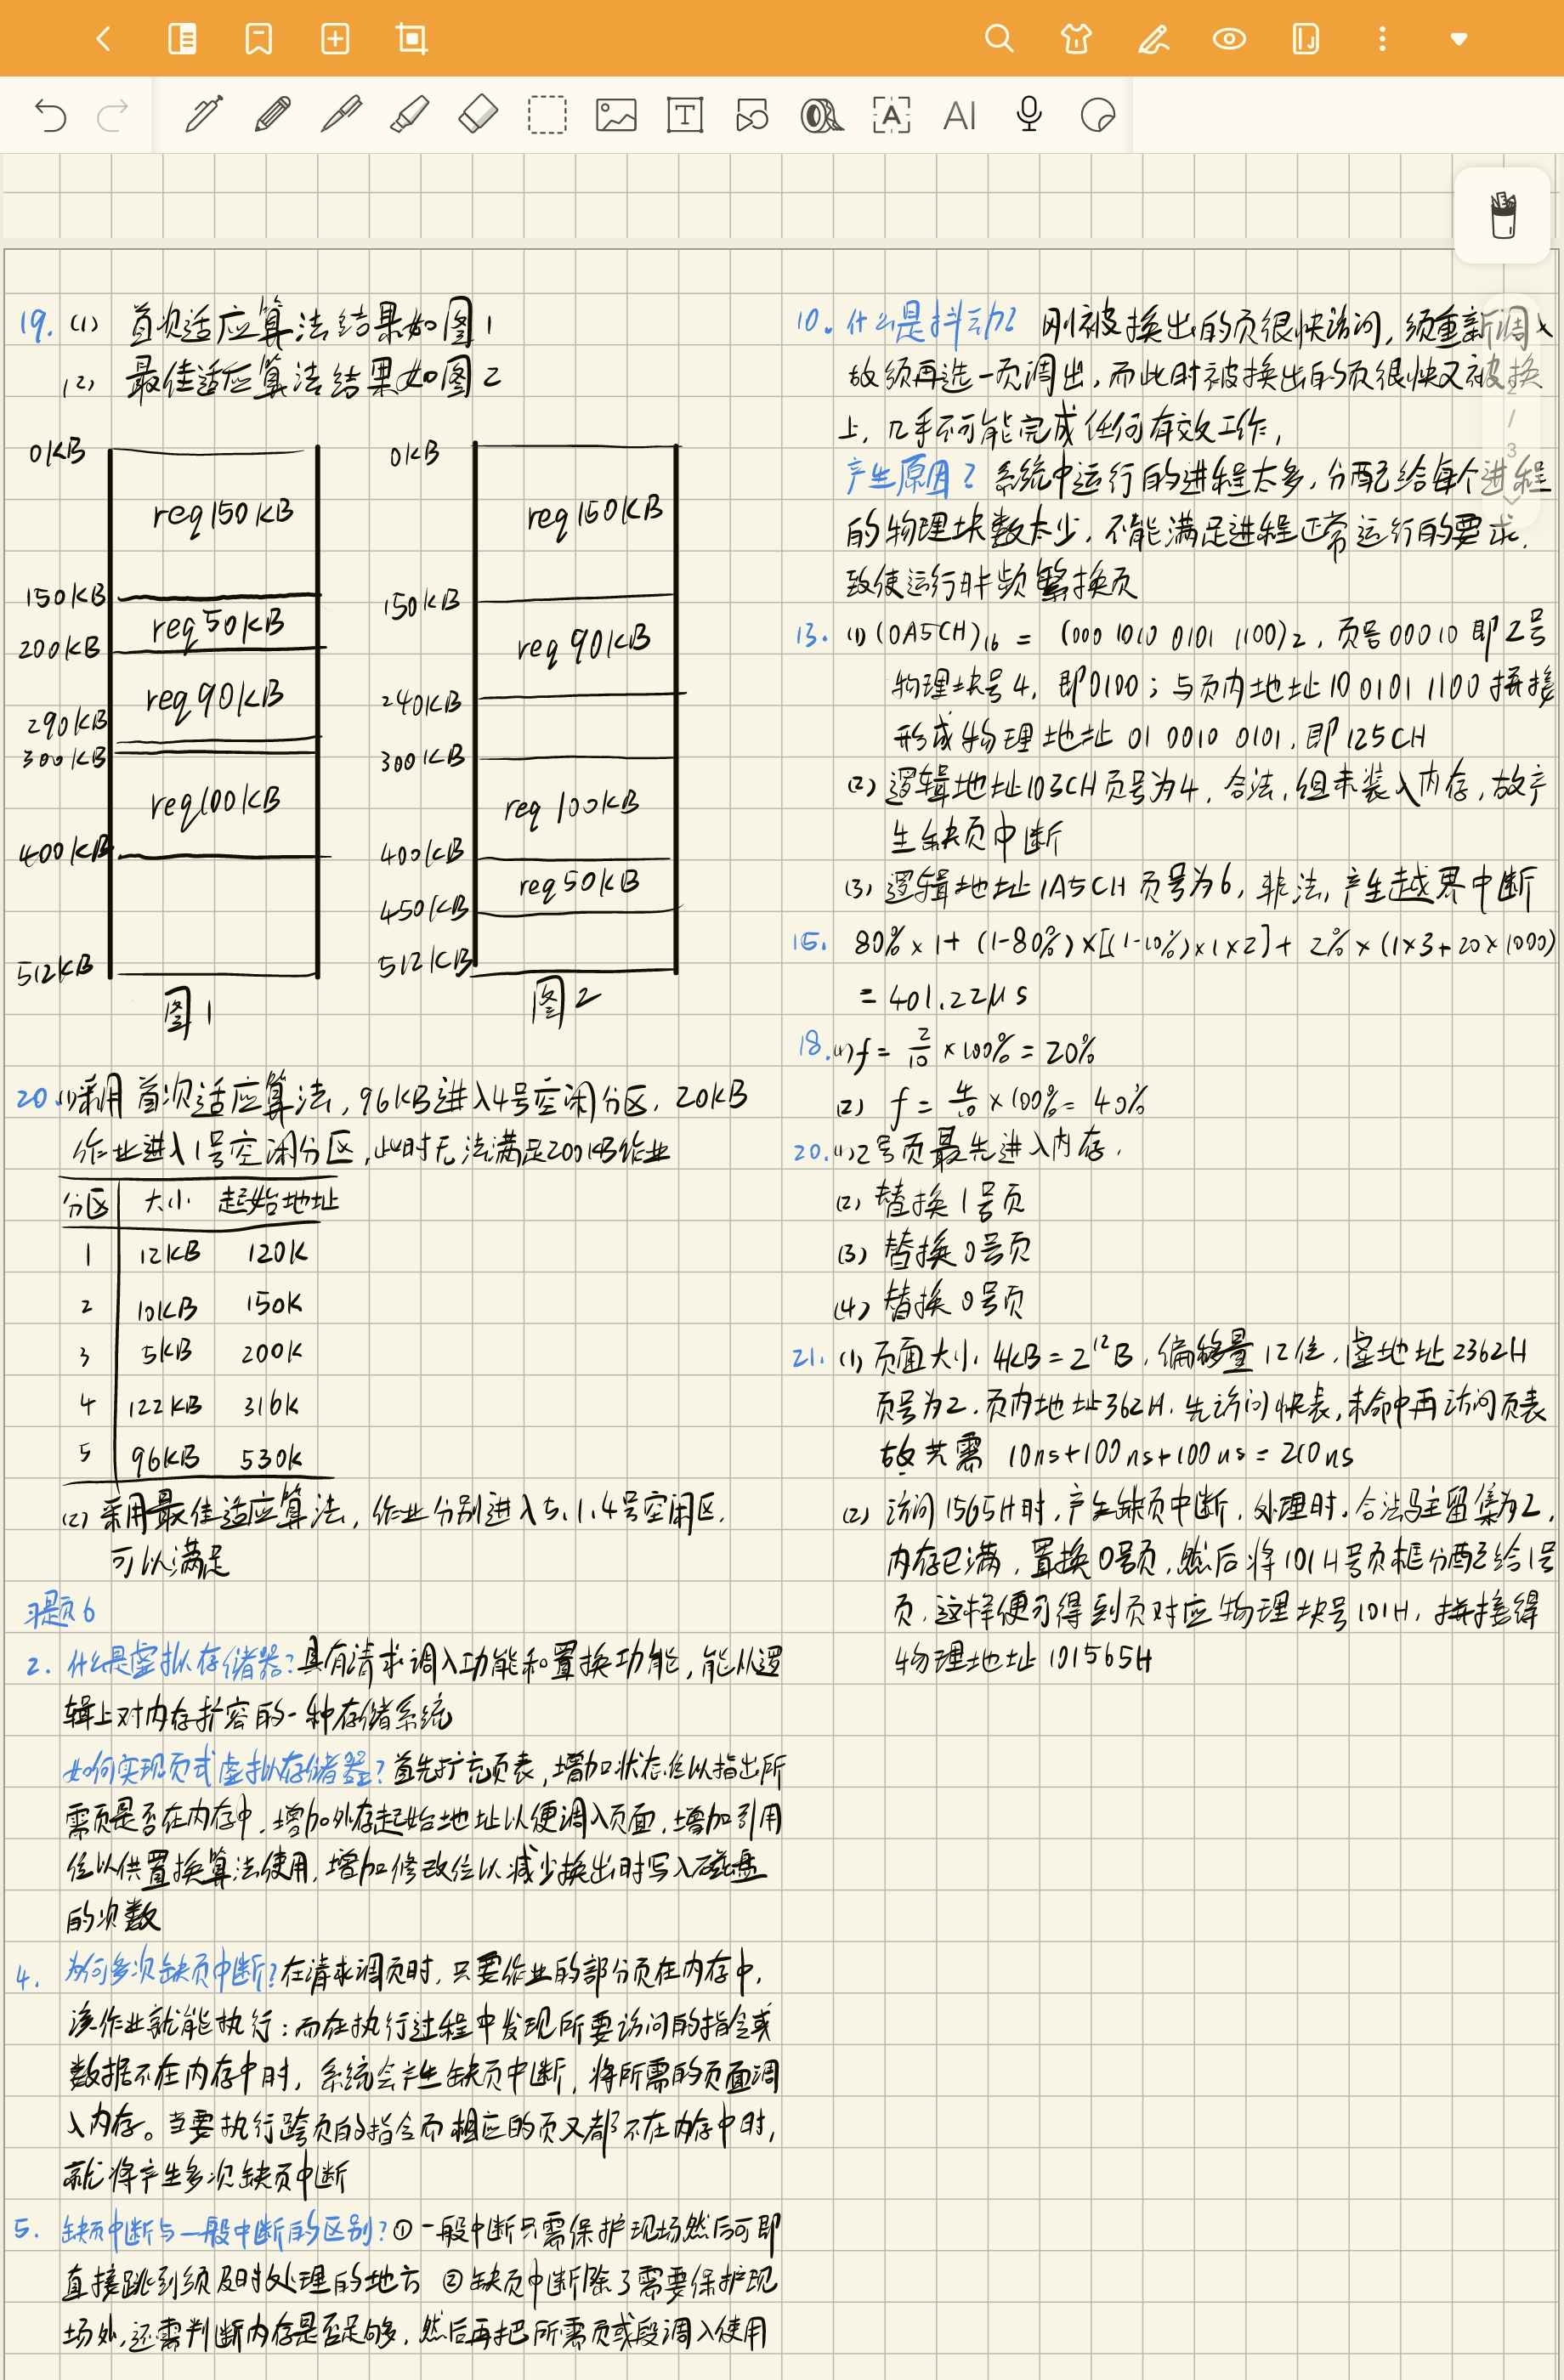 19. (1) 首次适应算法结果如图1
(2) 最佳适应算法结果如图2
0KB
req150KB
150KB
req50KB
200KB
req90KB
290KB
300KB
req100KB
400KB
512KB
图1
0KB
req150KB
150KB
req 90KB
240KB
300KB
req 100KB
400KB
req50KB
450KB
512KB
图2
20.(1)采用首次适应算法,96KB进入4号空闲分区,20KB
作业进入1号空闲分区,此时无法满足200KB作业
分区 大小 起始地址
1 12KB 120K
2 10KB 150K
3 5KB 200K
4 122KB 316K
5 96KB 530K
(2) 采用最佳适应算法,作业分别进入5,1,4号空闲区,
可以满足
习题6
2. 什么是虚拟存储器?具有请求调入功能和置换功能,能从逻
辑上对内存扩容的一种存储系统
如何实现页式虚拟存储器?首先扩充页表,增加状态位以指出所
需页是否在内存中,增加外存起始地址以便调入页面,增加引用
位以供置换算法使用,增加修改位以减少换出时写入磁盘
的次数
4. 为何多次缺页中断?在请求调页时,只要作业的部分页在内存中,
该作业就能执行;而在执行过程中发现所要访问的指令或
数据不在内存中时,系统会产生缺页中断,将所需的页面调
入内存。当要执行跨页的指令而相应的页又都不在内存中时,
就将产生多次缺页中断
5. 缺页中断与一般中断的区别?①一般中断只需保护现场然后可即
直接跳到须及时处理的地方 ②缺页中断除了需要保护现
场外,还需判断内存是否足够,然后再把所需页或段调入使用
10. 什么是抖动? 刚被换出的页很快访问,须重新调入
故须再选一页调出,而此时被换出的页很快又被换
上,几乎不可能完成任何有效工作,
产生原因?系统中运行的进程太多,分配给每个进程
的物理块数太少,不能满足进程正常运行的要求,
致使运行时频繁换页
13. (1)(0A5CH)16 = (000 1010 0101 1100)2,页号00010即2号
物理块号4,即0100;与页内地址10 0101 1100拼接
形成物理地址 01 0010 0101,即125CH
(2) 逻辑地址103CH页号为4,合法,但未装入内存,故产
生缺页中断
(3) 逻辑地址1A5CH页号为6,非法,产生越界中断
15. 80%×1+(1-80%)×[(1-10%)×1×2]+ 2%×(1×3+20×1000)
= 401.22μs
18.(1)f= 2/10 ×100% = 20%
(2) f = 4/10 ×100%= 40%
20.(1)2号页最先进入内存,
(2) 替换1号页
(3) 替换0号页
(4) 替换0号页
21. (1) 页面大小4KB=2¹²B,偏移量12位,虚地址2362H
页号为2,页内地址362H,先访问快表,未命中再访问页表
故共需 10ns+100ns+100ns=210ns
(2) 访问1565H时,产生缺页中断,处理时,合法驻留集为2,
内存已满,置换0号页,然后将101H号页框分配给1号
页,这样便可得到页对应物理块号101H,拼接得
物理地址101565H
2
/
3
T
A
AI